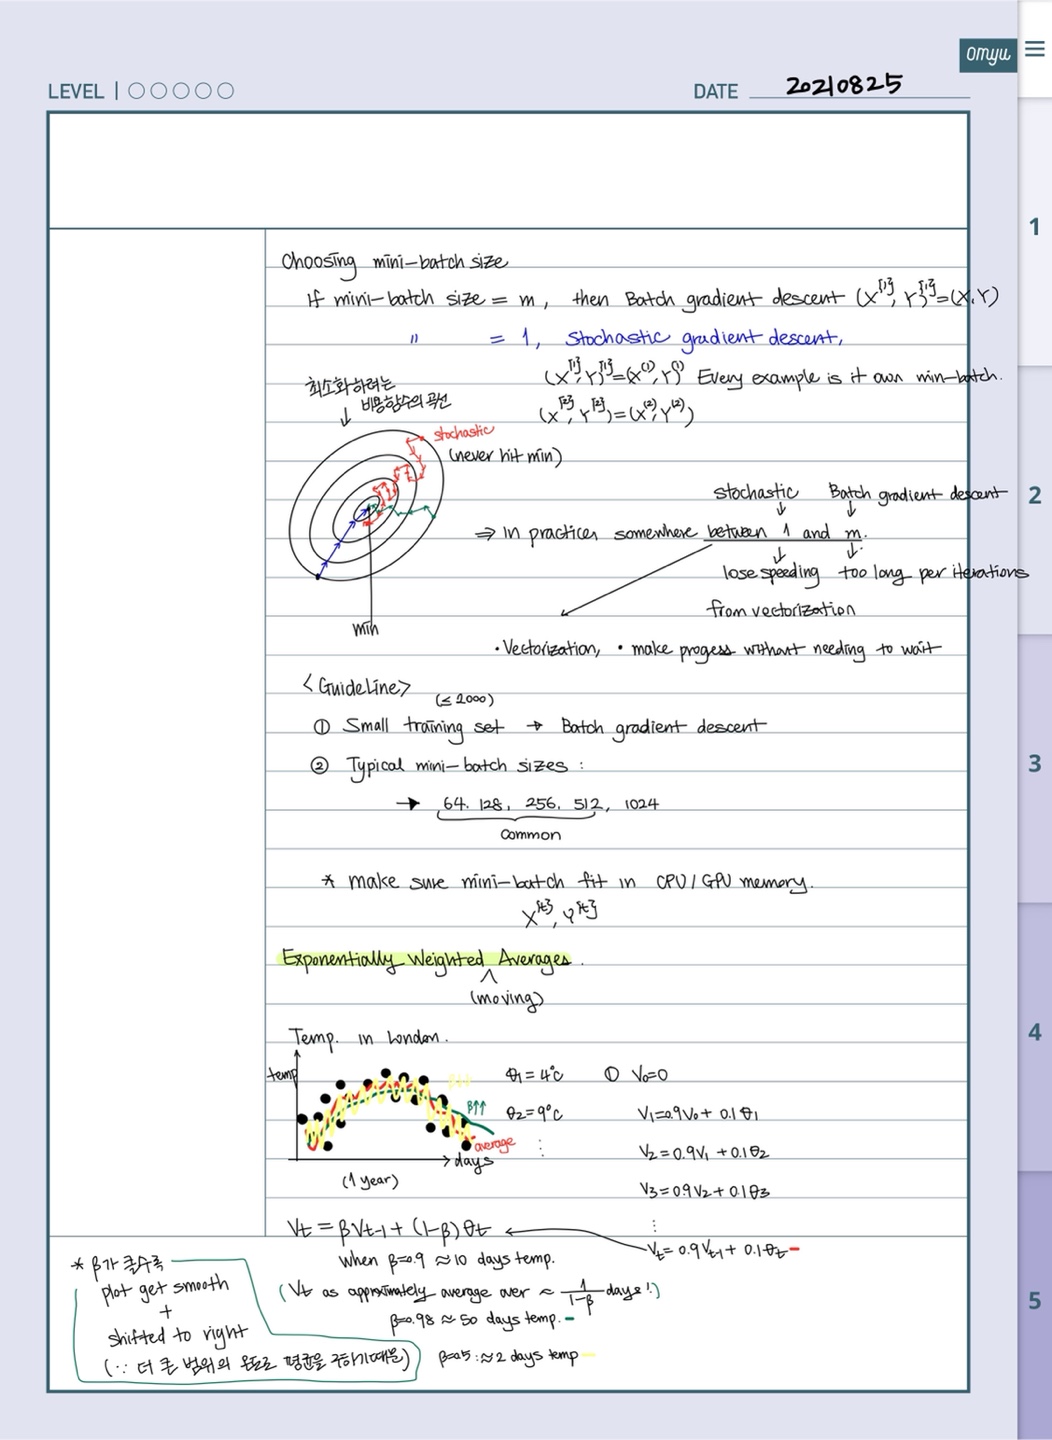 omyu
LEVEL | ○○○○○
DATE 20210825
1
2
3
4
5
Choosing mini-batch size
If mini-batch size = m, then Batch gradient descent (X^{1}, Y^{1})=(X,Y)
" = 1, Stochastic gradient descent,
(X^{1}, Y^{1})=(X^(1), Y^(1)) Every example is it own min-batch.
(X^{2}, Y^{2})=(X^(2), Y^(2))
최소화하려는
비용함수의 곡선
stochastic
(never hit min)
min
stochastic Batch gradient descent
⇒ In practice, somewhere between 1 and m.
lose speeding too long per iterations
from vectorization
· Vectorization, · make progess without needing to wait
<GuideLine>
(≤ 2000)
① Small training set → Batch gradient descent
② Typical mini-batch sizes :
→ 64. 128, 256. 512, 1024
Common
* make sure mini-batch fit in CPU/GPU memory.
X^{t}, Y^{t}
Exponentially Weighted Averages.
(moving)
Temp. in London.
temp
β↑↑
average
days
(1 year)
θ1 = 4°C
θ2 = 9°C
⋮
① V0=0
V1=0.9V0 + 0.1θ1
V2=0.9V1 + 0.1θ2
V3=0.9V2 + 0.1θ3
⋮
Vt= 0.9Vt-1 + 0.1θt
Vt = βVt-1 + (1-β)θt
When β=0.9 ≈ 10 days temp.
(Vt as approximately average over ≈ 1/(1-β) days!)
β=0.98 ≈ 50 days temp.
β=0.5 : ≈ 2 days temp
* β가 클수록
plot get smooth
+
shifted to right
(∵ 더 큰 범위의 온도로 평균을 구하기때문)